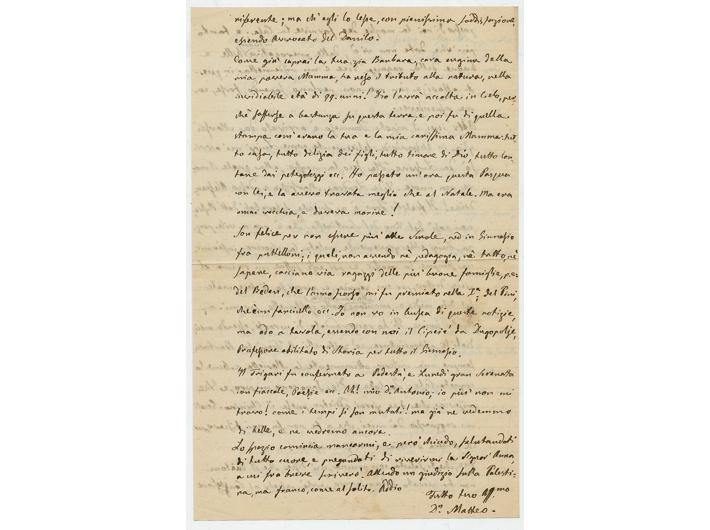 riferente; ma ch'egli lo lesse, con pienissima soddisfazione,
essendo Avvocato del Danilo.
Come già saprai la tua zia Barbara, cara cugina della
mia povera Mamma, ha reso il tributo alla natura, nella
invidiabile età di 99. anni! Dio l'avrà accolta in Cielo, per-
chè sofferse a bastanza su questa terra, e poi fu di quella
stampa com'erano la tua e la mia carissima Mamma: tut-
to casa, tutto delizia dei figli, tutto timore di Dio, tutto lon-
tane dai petegolezzi ecc. Ho passato un'ora questa Pasqua
con lei, e la avevo trovata meglio che al Natale. Ma era
omai vecchia, e doveva morire!
Son felice per non essere più alle Scuole, ed in Ginnasio
fra i quali, non avendo nè pedagogia, nè tatto, nè
sapere, cacciano via ragazzi delle più buone famiglie,
del che l'anno scorso mi fu premiato nella I.a del
ch'è un fanciullo ecc. Io non vo in busca di queste notizie,
ma odo a tavola, essendo con noi il da
Professore abilitato di Storia per tutto il Ginnasio.
Il Trigari fu confermato a Podestà, e Lunedì gran Serenata
con fiaccole, Poesie ecc. Ah! mio D. Antonio; io più non mi
trovo! come i tempi si son mutati! ma già ne vedemmo
di belle, e ne vedremo ancora.
Lo spazio comincia mancarmi, e però salutandoti
di tutto cuore e pregandoti di riverirmi la Signora Anna
a cui fra breve scriverò. Attendo un giudizio sulla Palesti-
na, ma franco, come al solito. Addio
Tutto tuo Aff.mo
D.n Matteo.